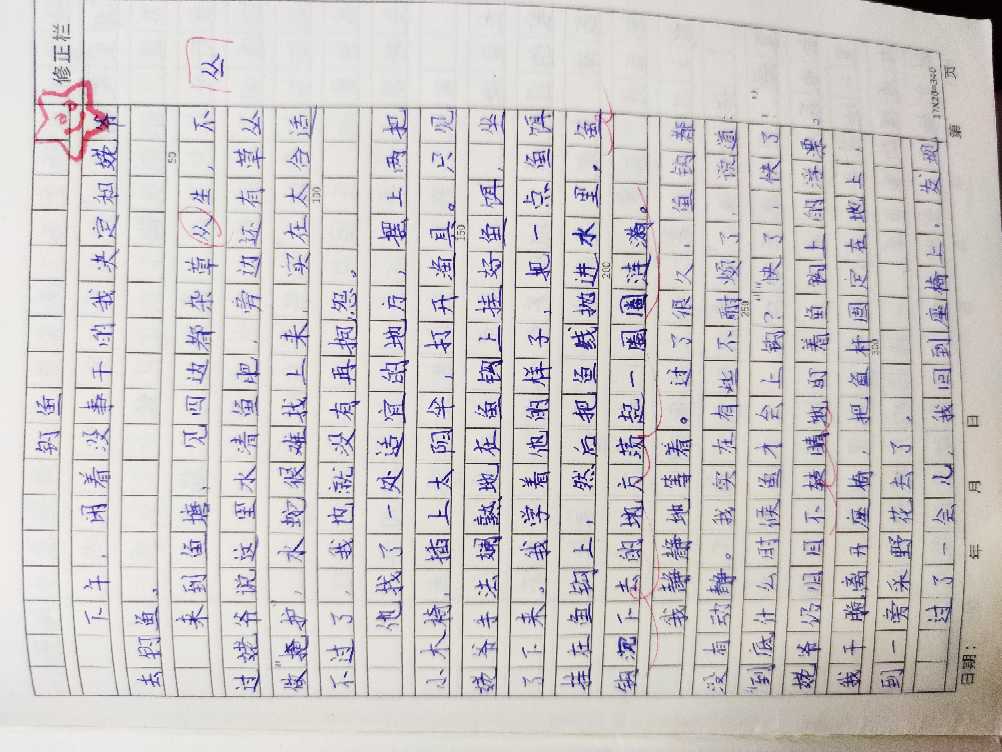 修正栏
钓鱼
下午，闲着没事干的我决定和姥爷
去钓鱼。
来到鱼塘，见四边都杂草从生，不
丛
过姥爷说这里水清鱼肥，旁边还有草丛
做掩护，水蛇很难找上来，实在太合适
不过了，我也就没有再抱怨。
他找了一处适宜的地方，摆上两把
小木椅，插上太阳伞，打开渔具。只见
姥爷手法娴熟地在鱼钩上挂好鱼饵，坐
了下来。我学着他的样子，把一点鱼饵
挂在鱼钩上，然后把鱼线抛进水里。鱼
钩沉下去的地方荡起一圈圈涟漪。
我静静地等着。过了很久，鱼钩都
没有动静。我实在有些不耐烦了，说道：
“到底什么时候鱼才会上钩？”“快了，快了”
姥爷仍旧目不睛地盯着鱼钩上的浮漂。
我干脆离开座椅，把鱼杆固定在地上，
到一旁采野花去了。
过了一会儿，我回到座椅上，发现
50
100
150
200
250
300
日期： 年 月 日
17X20=340
第 页